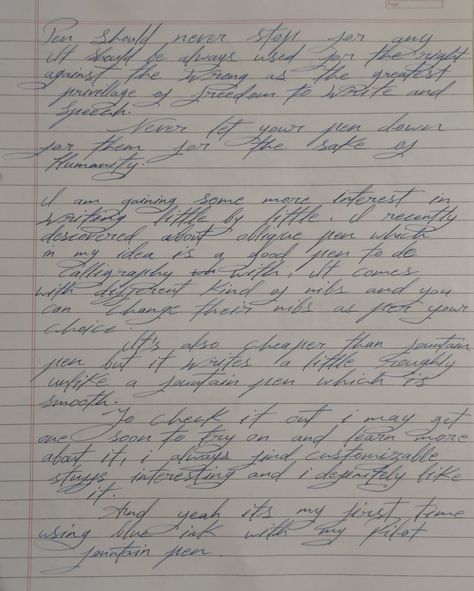 Pen should never stop for any
it should be always used for the right
against the wrong as the greatest
privillage of freedom to write and
speech.
Never let your pen down
for them for the sake of
Humanity.
I am gaining some more interest in
writing little by little. I recently
descovered about oblique pen which
in my idea is a good pen to do
Calligraphy with. It comes
with different kind of nibs and you
can change their nibs as per your
choice.
It's also cheaper than fountain
pen but it writes a little roughly
unlike a fountain pen which is
smooth.
To check it out i may get
one soon to try on and learn more
about it, i always find customizable
stuffs interesting and i definitely like
it.
And yeah its my first time
using blue ink with my Pilot
fountain pen.